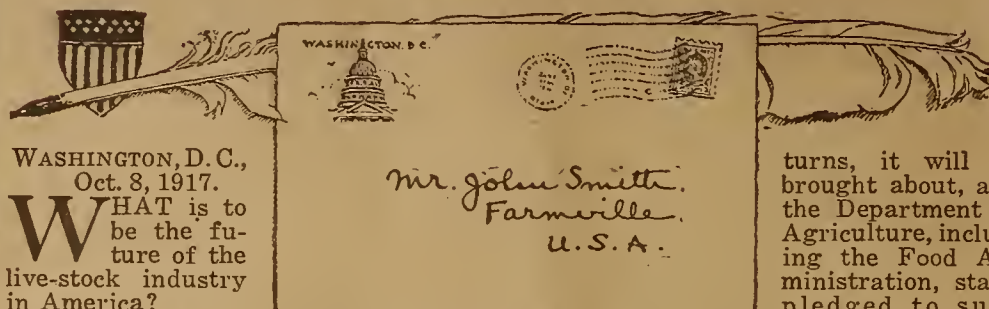 WASHINGTON, D.C.,
Oct. 8, 1917.
WHAT is to
be the fu-
ture of the
live-stock industry
in America?
WASHINGTON. D C.
Mr. John Smith.
Farmville.
U.S.A.
turns, it will
brought about, a
the Department
Agriculture, inclu
ing the Food A
ministration, sta
pledged to su